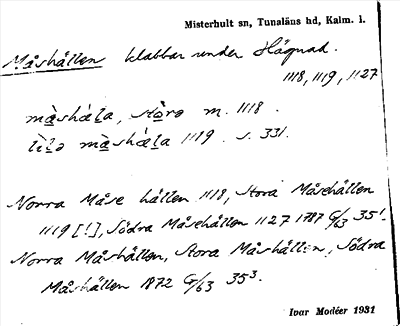 Misterhult sn, Tunaläns hd, Kalm. l.
Måshällen klabbar under Hägnad.
1118, 1119, 1127
màshála, stòrə m. 1118.
lìlə màshála 1119. s. 331.
Norra Måse hällen 1118, Stora Måsehällen
1119 [!], Södra Måsehällen 1127 1787 G/63 35¹.
Norra Måshällen, Stora Måshällen, Södra
Måshällen 1872 G/63 35³.
Ivar Modéer 1931